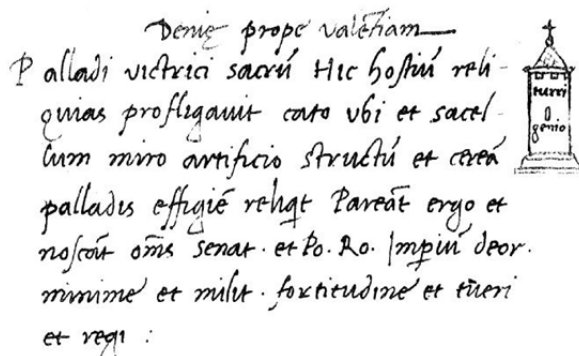 Denię prope valētiam
Palladi victrici sacrū Hic hostiū reli-
quias profligavit cato vbi et sacel-
lum miro artificio structū et cereā
palladis effigiē reliq̄t Pareāt ergo et
noscāt om̄s senat. et Po. Ro. Imperiū deor.
minime et milit. fortitudine et tūeri
et regi :
turri
genio